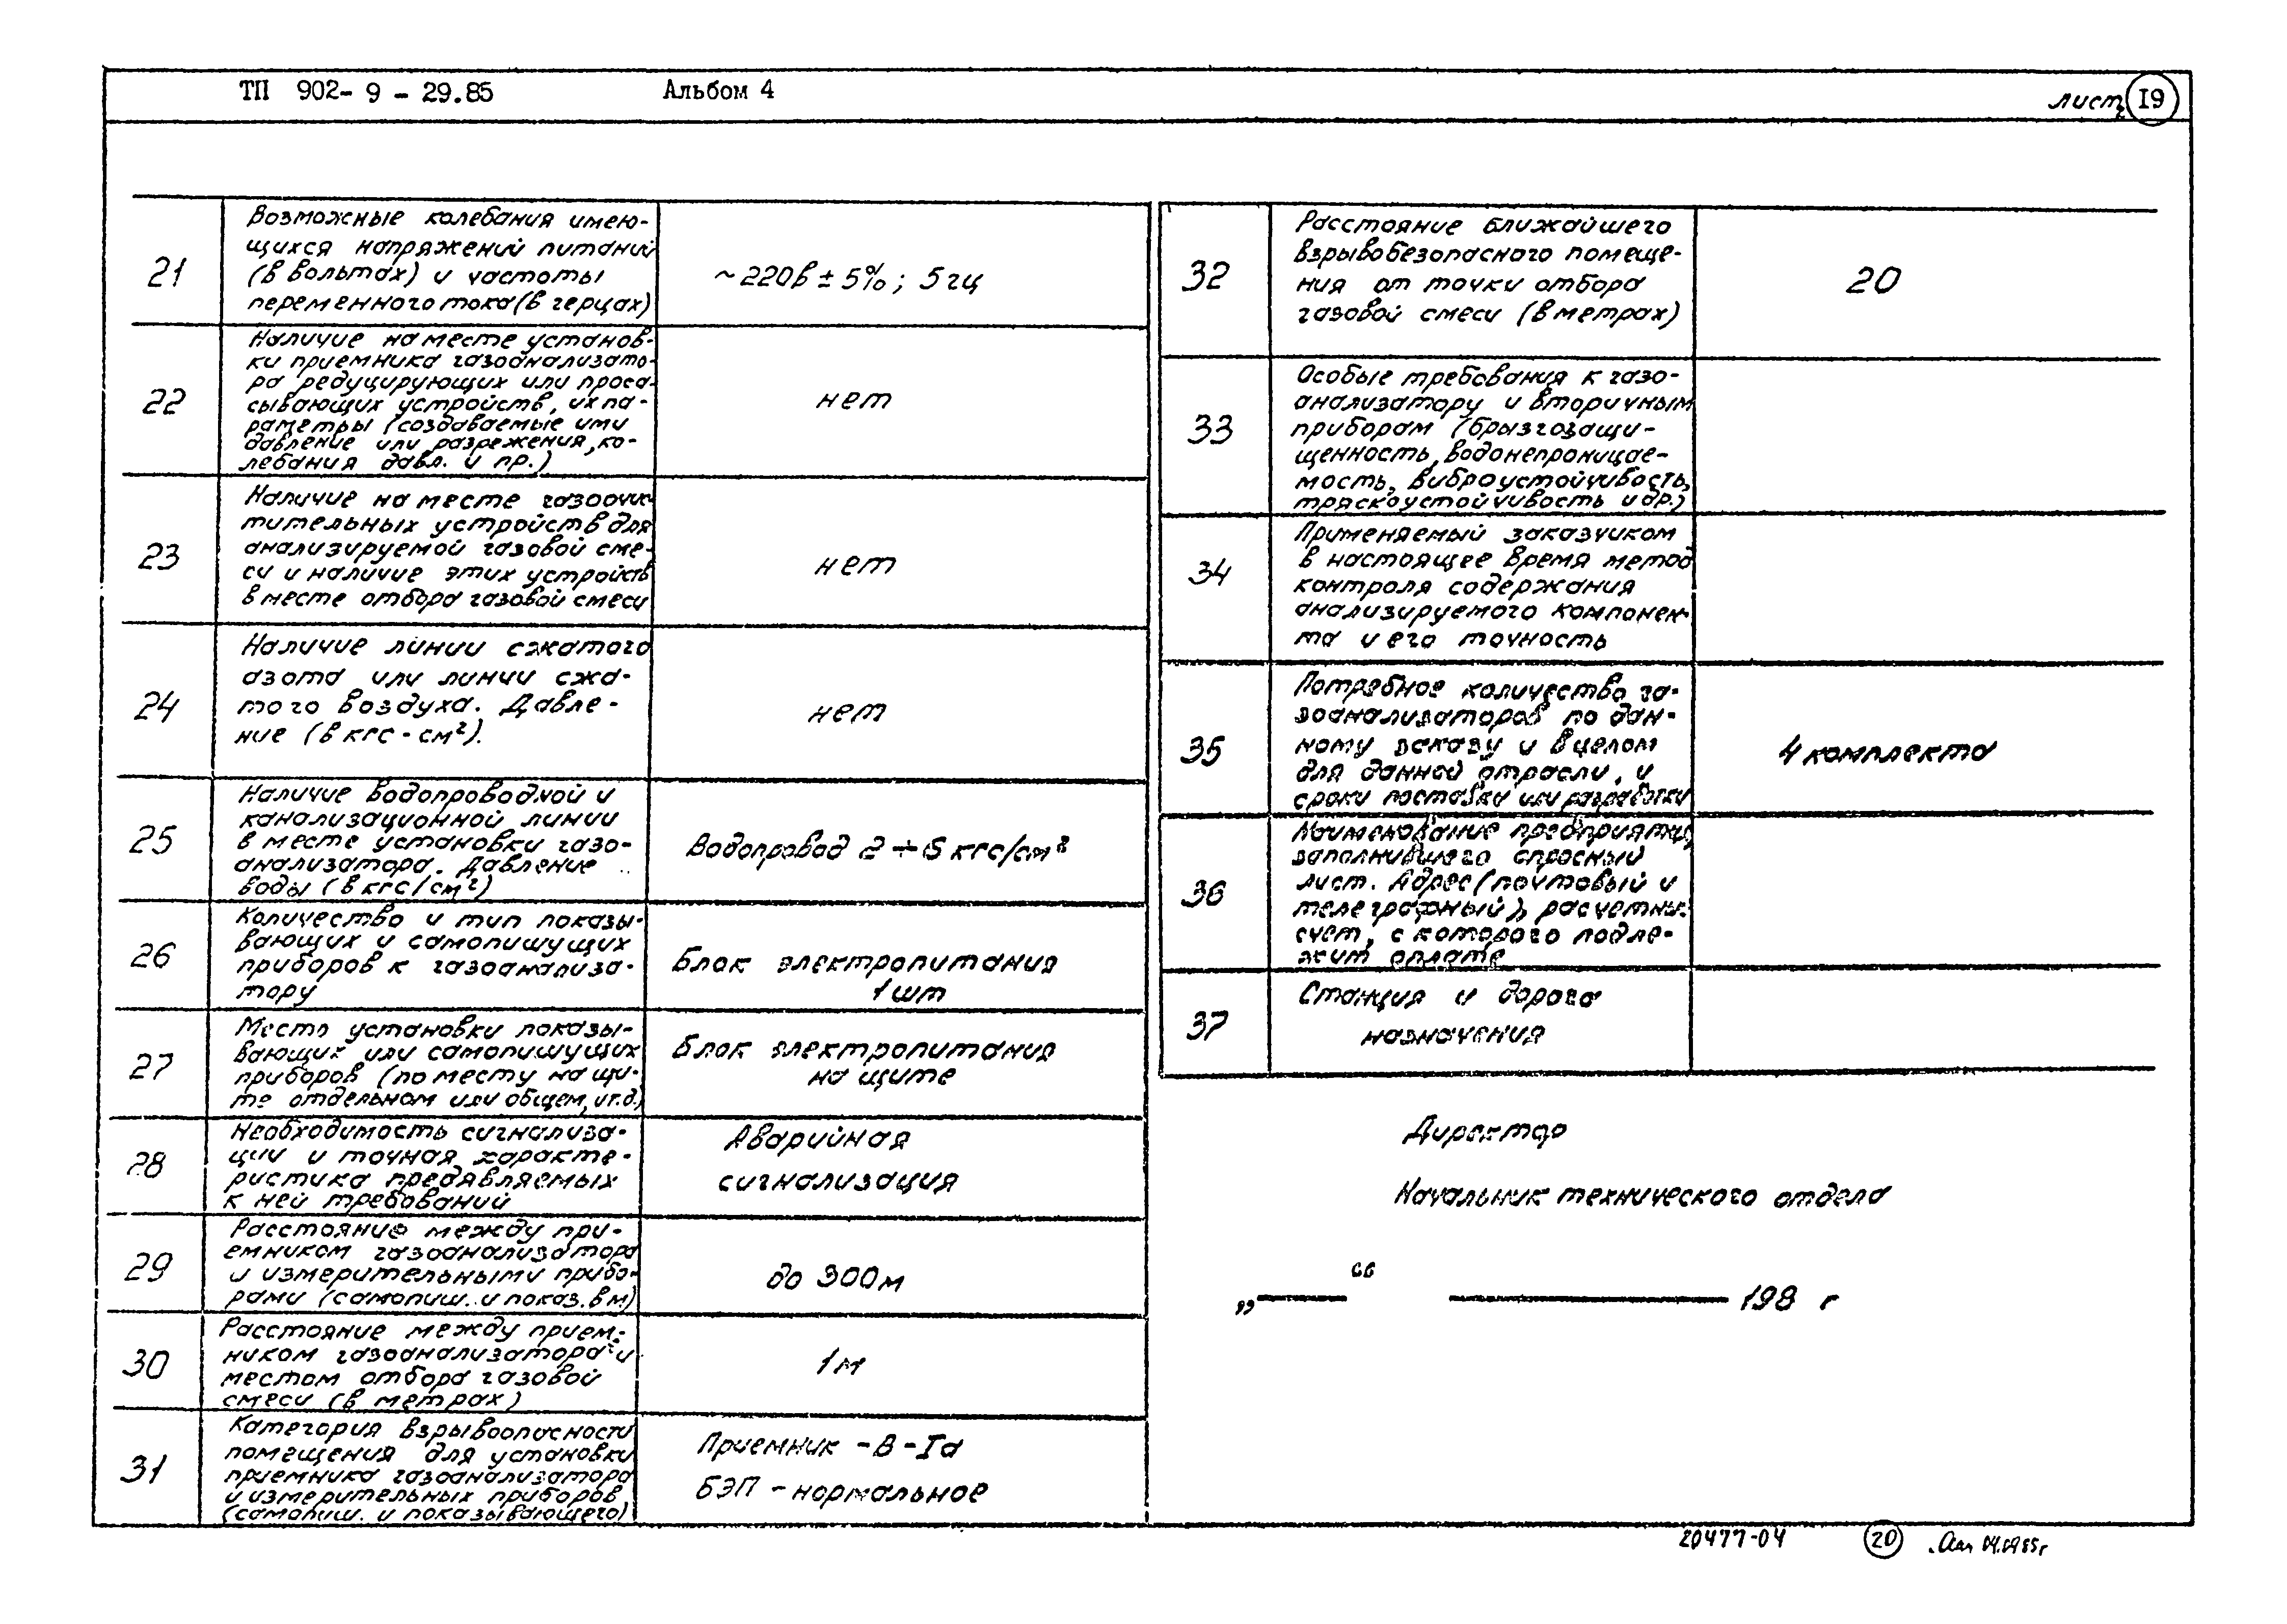 ТП 902-9-29.85 Альбом 4
лист 19
21
Возможные колебания имею-
щихся напряжений питаний
(в вольтах) и частоты
переменного тока (в герцах)
~220в ± 5%; 5гц
22
Наличие на месте установ-
ки приемника газоанализато-
ра редуцирующих или проса-
сывающих устройств, их па-
раметры (создаваемые ими
давление или разрежения, ко-
лебания давл. и пр.)
нет
23
Наличие на месте газоочис-
тительных устройств для
анализируемой газовой сме-
си и наличие этих устройств
в месте отбора газовой смеси
нет
24
Наличие линии сжатого
азота или линии сжа-
того воздуха. Давле-
ние (в кгс-см²).
нет
25
Наличие водопроводной и
канализационной линии
в месте установки газо-
анализатора. Давление
воды (в кгс/см²)
Водопровод 2÷5 кгс/см²
26
Количество и тип показы-
вающих и самопишущих
приборов к газоанализа-
тору
Блок электропитания
1 шт
27
Место установки показы-
вающих или самопишущих
приборов (по месту на щи-
те отдельном или общем, и т.д.)
Блок электропитания
на щите
28
Необходимость сигнализа-
ции и точная характе-
ристика предявляемых
к ней требований
Аварийная
сигнализация
29
Расстояние между при-
емником газоанализатора
и измерительными прибо-
рами (самопиш. и показ. в м)
до 300м
30
Расстояние между прием-
ником газоанализатора и
местом отбора газовой
смеси (в метрах)
1м
31
Категория взрывоопасности
помещения для установки
приемника газоанализатора
и измерительных приборов
(самопиш. и показывающего)
Приемник -В-Iа
БЭП - нормальное
32
Расстояние ближайшего
взрывобезопасного помеще-
ния от точки отбора
газовой смеси (в метрах)
20
33
Особые требования к газо-
анализатору и вторичным
приборам (брызгозащи-
щенность, водонепроницае-
мость, виброустойчивость,
тряскоустойчивость и др.)
34
Применяемый заказчиком
в настоящее время метод
контроля содержания
анализируемого компонен-
та и его точность
35
Потребное количество га-
зоанализаторов по дан-
ному заказу и в целом
для данной отрасли, и
сроки поставки или разработки
4 комплекта
36
Наименование предприятия,
заполнившего опросный
лист. Адрес (почтовый и
телеграфный), расчетный
счет, с которого подле-
жит оплате
37
Станция и дорога
назначения
Директор
Начальник технического отдела
„ “ 198 г
20477-04 20 04.09.85г